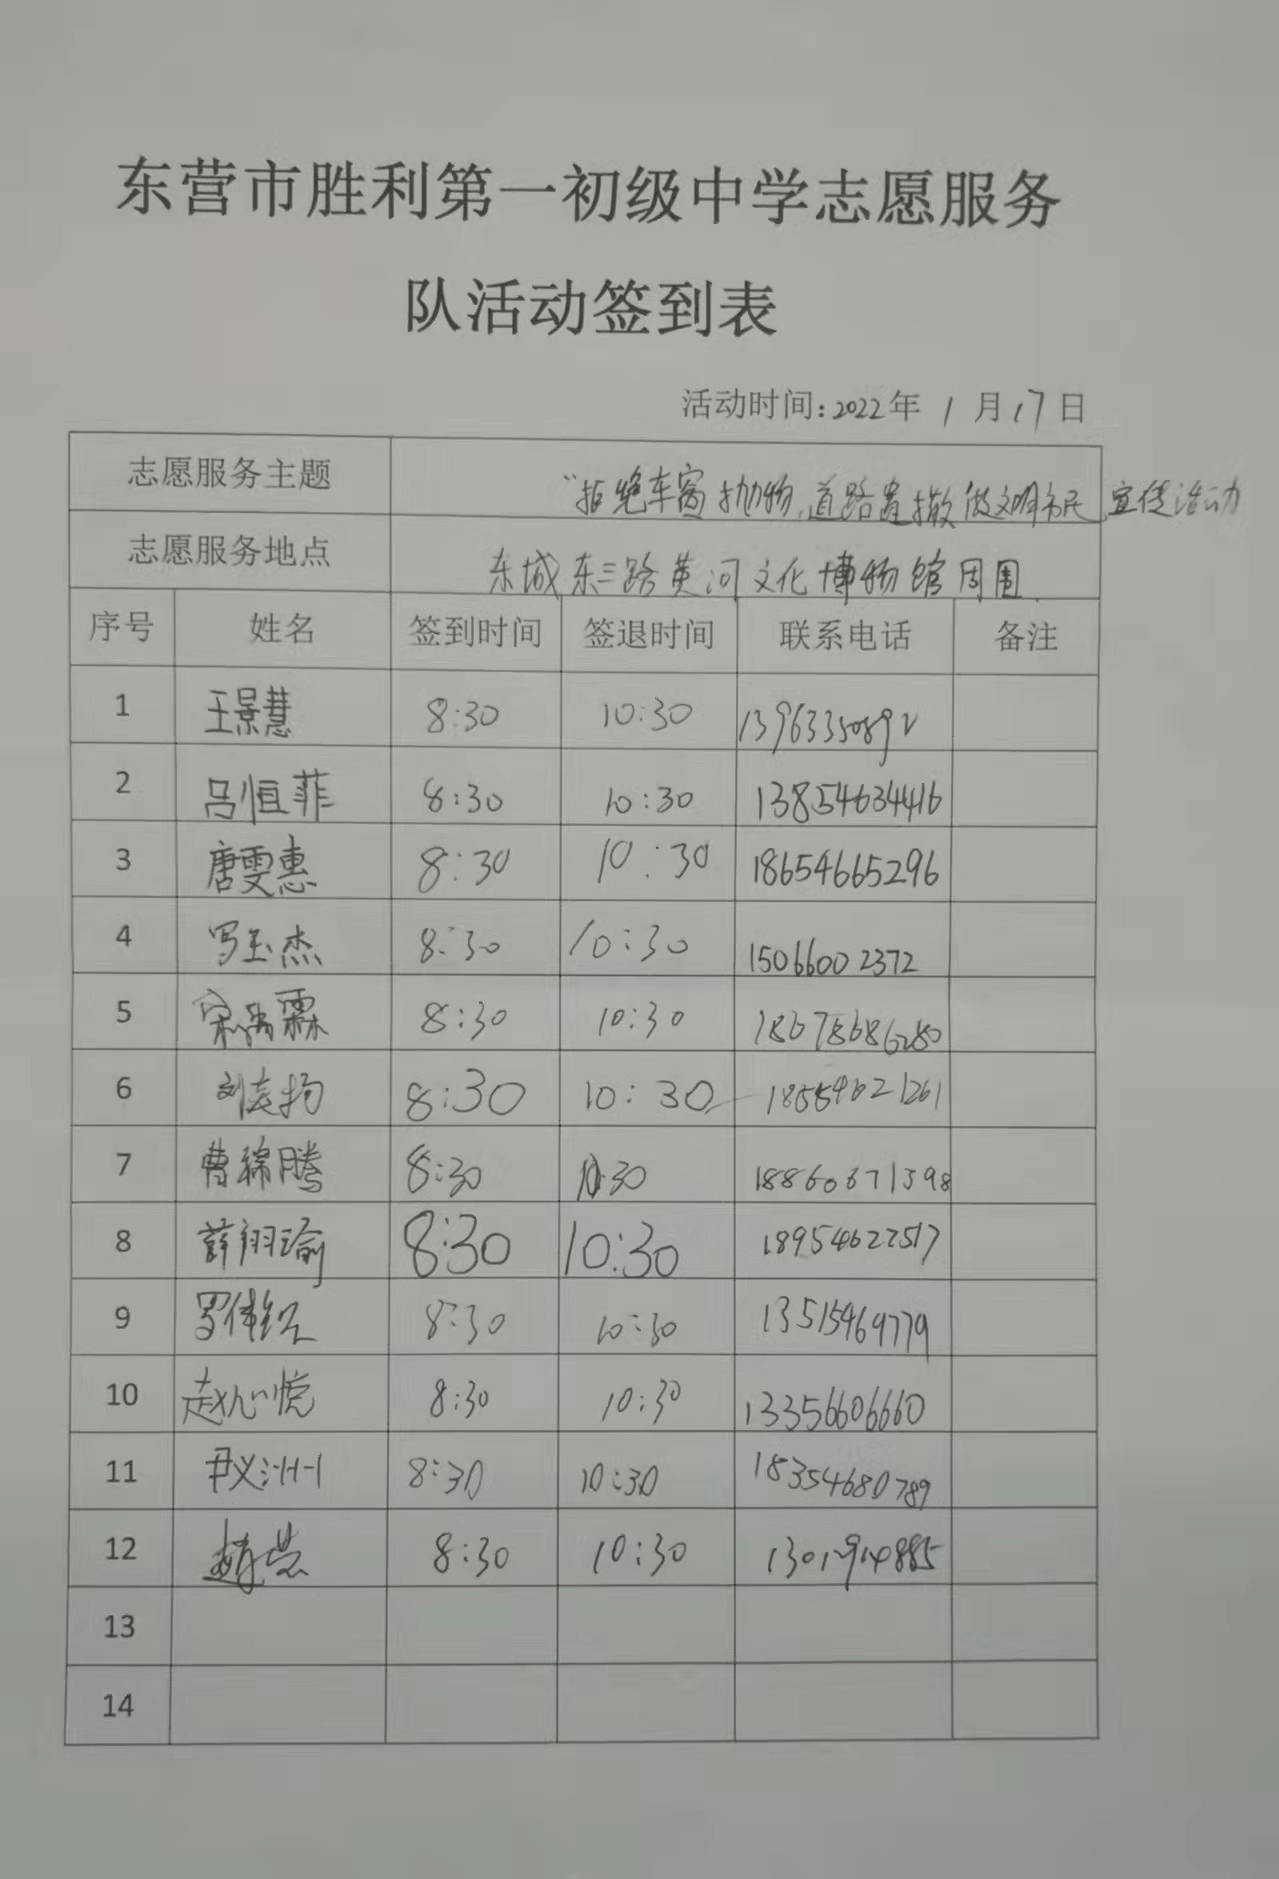 东营市胜利第一初级中学志愿服务
队活动签到表
活动时间:2022年 1 月 17 日
志愿服务主题 "拒绝车窗抛物,道路遗撒 做文明市民 宣传活动
志愿服务地点 东城东三路黄河文化博物馆周围
序号 姓名 签到时间 签退时间 联系电话 备注
1 王景慧 8:30 10:30 13963350892
2 吕恒菲 8:30 10:30 13854634416
3 唐雯惠 8:30 10:30 18654665296
4 玉杰 8:30 10:30 15066002372
5 宋禹霖 8:30 10:30 18678686280
6 刘志扬 8:30 10:30 18554621261
7 曹锦腾 8:30 30 18860671398
8 薛翔瑜 8:30 10:30 18954622517
9 罗伟 8:30 10:30 13515469779
10 赵心悦 8:30 10:30 13356606660
11 尹义州 8:30 10:30 18354680789
12 8:30 10:30
13
14